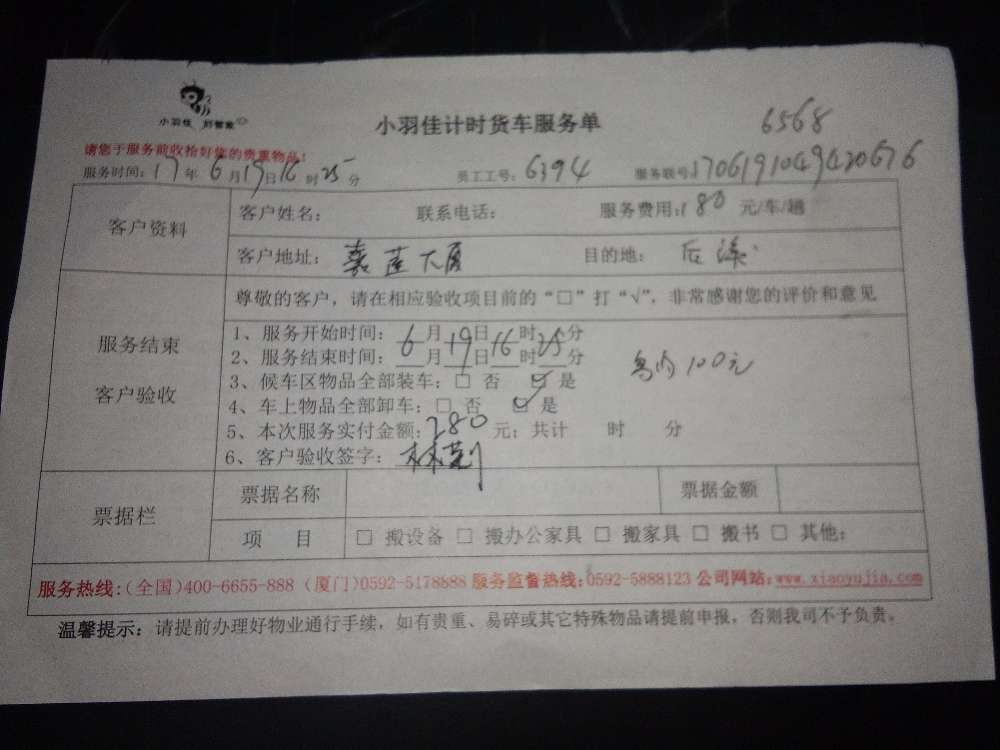 小羽佳 好管家
小羽佳计时货车服务单
6568
请您于服务前收拾好您的贵重物品!
服务时间:17年6月19日16时25分 员工工号:6394 服务联号
客户资料 客户姓名: 联系电话: 服务费用:180元/车/趟
客户地址:嘉莲大厦 目的地:
服务结束
客户验收
尊敬的客户，请在相应验收项目前的“□”打“√”，非常感谢您的评价和意见
1、服务开始时间:6月19日16时25分
2、服务结束时间: 月 日 时 分
岛内100元
3、候车区物品全部装车:□ 否 ☑ 是
4、车上物品全部卸车:□ 否 ☑ 是
5、本次服务实付金额:280元;共计 时 分
6、客户验收签字:
票据栏 票据名称 票据金额
项 目 □ 搬设备 □ 搬办公家具 □ 搬家具 □ 搬书 □ 其他:
服务热线:(全国)400-6655-888 (厦门)0592-5178888 服务监督热线:0592-5888123 公司网站:www.xiaoyujia.com
温馨提示：请提前办理好物业通行手续，如有贵重、易碎或其它特殊物品请提前申报，否则我司不予负责。